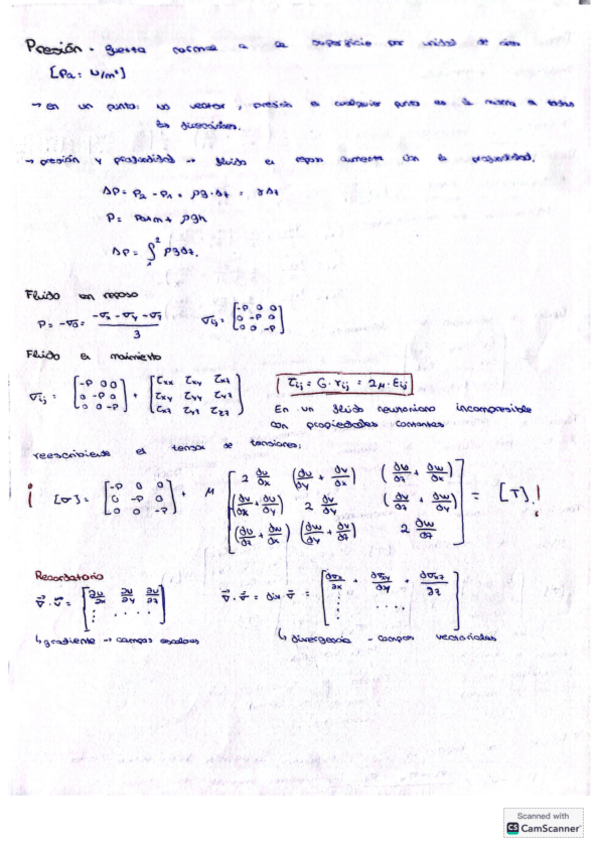 Presión - fuerza normal a la superficie por unidad de área
[Pa = N/m²]
→ en un punto: no vector, presión en cualquier punto es la misma en todas
las direcciones.
→ presión y profundidad → fluido en reposo aumenta con la profundidad.
ΔP = P₂ - P₁ = ρg·Δz = γΔz
P = Patm + ρgh
ΔP = ∫₁² ρgdz.
Fluido en reposo
P = -σ₀ = (-σx - σy - σz)/3   σij = [-P 0 0; 0 -P 0; 0 0 -P]
Fluido en movimiento
σij = [-P 0 0; 0 -P 0; 0 0 -P] + [τxx τxy τxz; τxy τyy τyz; τxz τyz τzz]   τij = G·γij = 2μ·Eij
En un fluido newtoniano incompresible
con propiedades constantes
el tensor de tensiones:
¡ [σ] = [-P 0 0; 0 -P 0; 0 0 -P] + μ [2 ∂u/∂x (∂u/∂y + ∂v/∂x) (∂u/∂z + ∂w/∂x); (∂v/∂x + ∂u/∂y) 2 ∂v/∂y (∂v/∂z + ∂w/∂y); (∂u/∂z + ∂w/∂x) (∂w/∂y + ∂v/∂z) 2 ∂w/∂z] = [T] !
Recordatorio
∇·v = [∂u/∂x ∂u/∂y ∂u/∂z; ⋮ ....]   ∇·v = div·v = [∂σx/∂x + ∂σxy/∂y + ∂σxz/∂z; ⋮ ....]
↳ gradiente → campos escalares   ↳ divergencia - campos vectoriales
Scanned with
CS CamScanner